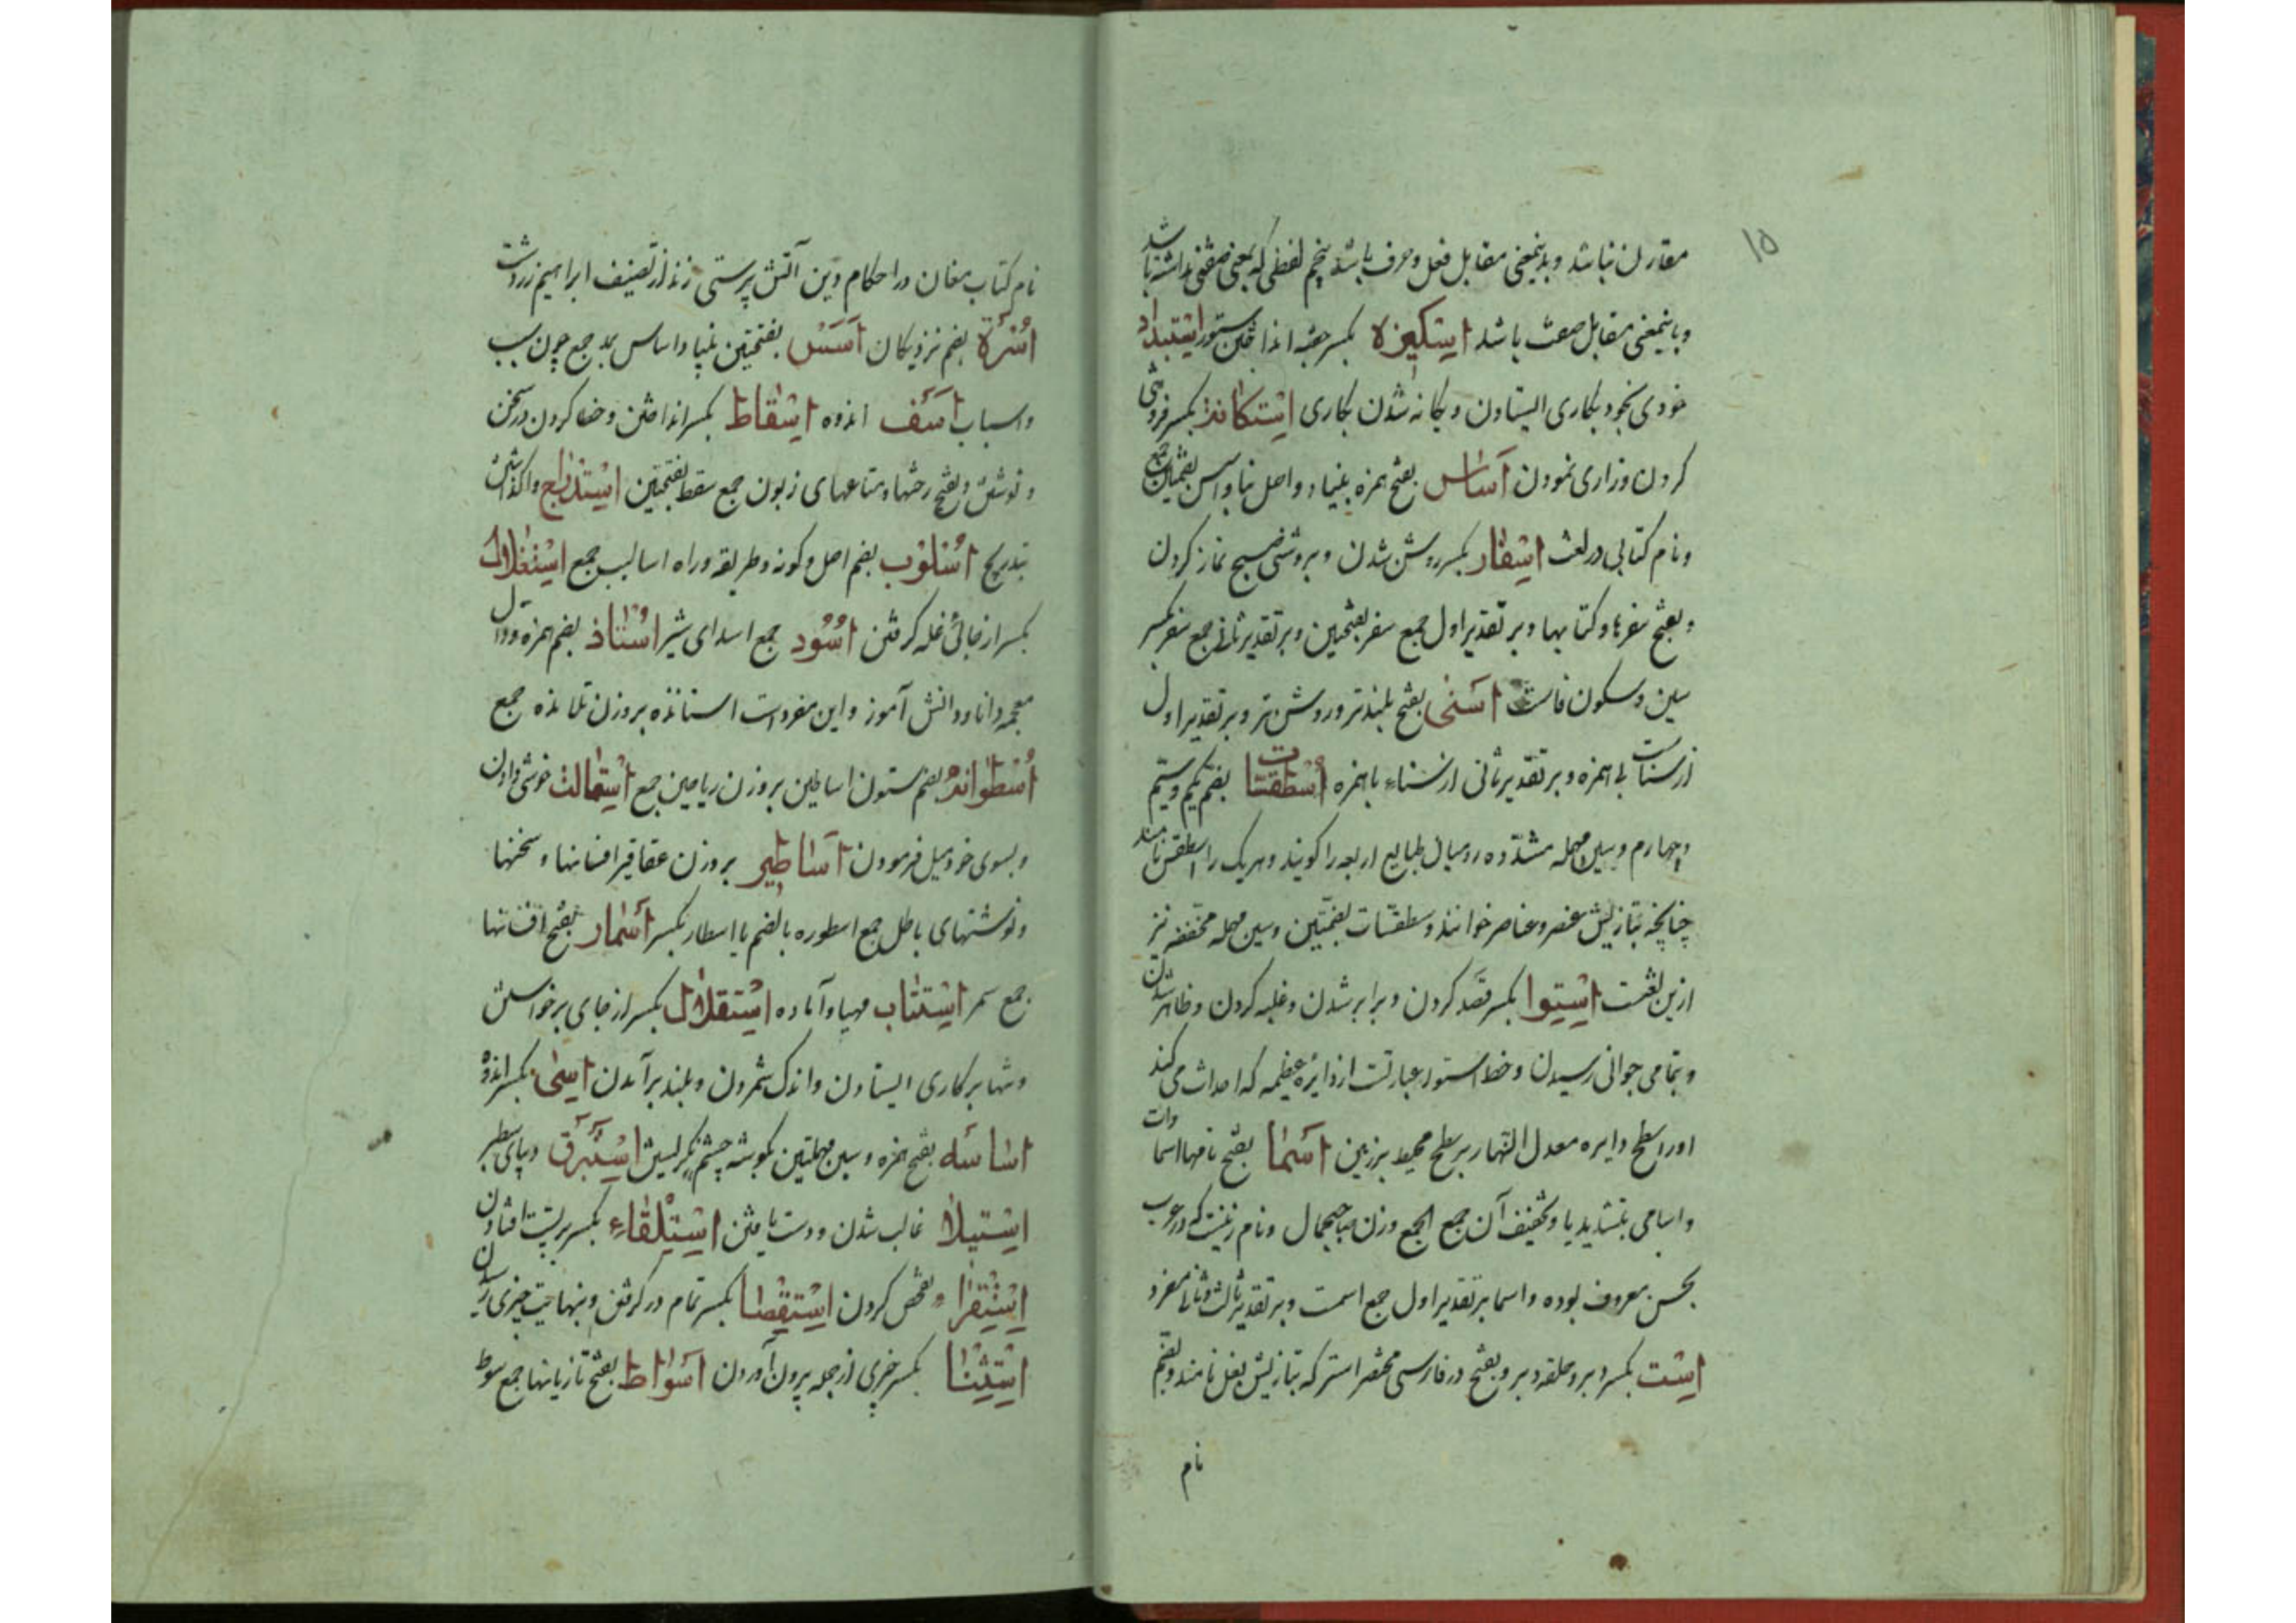 ۱۵
مقارن نباشد و بدینمعنی مقابل فعل و حرف باشد پنجم لفظی که بمعنی صفتی نداشته باشد
و باینمعنی مقابل صفت باشد استکیزه بکسر جفته انداختن ستور استبداد
خودی بخود بکاری ایستادن و یکانه شدن بکاری استکانة بکسر فروتنی
کردن و زاری نمودن اساس بفتح همزه بنیاد و اصل بنا و اسس بضمتین جمع
و نام کتابی در لغت اسفار بکسر روشن شدن و بروشنی صبح نماز کردن
و بفتح سفرها و کتابها و بر تقدیر اول جمع سفر بفتحین و بر تقدیر ثانی جمع سفر بکسر
سین و سکون فاست اسنی بفتح بلندتر و روشن تر و بر تقدیر اول
از سناست بی همزه و بر تقدیر ثانی از سناء با همزه اسطقسات بضم یکم و سیم
و چهارم و سین مهمله مشدده رومیان طبایع اربعه را کویند و هریک را اسطقس نامند
چنانچه بتازیش عنصر و عناصر خوانند و سطقسات بضمتین و سین مهمله مخففه نیز
ازین لغتست استوا بکسر قصد کردن و برابر شدن و غلبه کردن و ظاهر شدن
و بتمامی جوانی رسیدن و خط استوا عبارتست از دایرۀ عظیمه که احداث می کند
اورا سطح دایره معدل النهار بر سطح محیط بر زمین اسما بفتح نامها اسماوات
و اسامی بتشدید یا و تخفیف آن جمع الجمع وزن صاحبجمال و نام زنیست که در عرب
بحسن معروف بوده و اسما بر تقدیر اول جمع اسمست و بر تقدیر ثالث و ثانی مفرد
است بکسر دبر و حلقه دبر و بفتح در فارسی مختصر استر که بتازیش بغل نامند و بضم
نام
نام کتاب مغان در احکام دین آتش پرستی زند از تصنیف ابراهیم زردشت
اسرة بضم نزدیکان اسس بفتحتین بنیاد اساس بمد جمع چون سبب
و اسباب اسف اندوه اسقاط بکسر انداختن و خطا کردن در سخن
و نوشتن و بفتح رختها و متاعهای زبون جمع سقط بفتحتین استدراج واکذاشتن
بتدریج اسلوب بضم اصل و کونه و طریقه و راه اسالیب جمع استغلال
بکسر از جائی غله کرفتن اسود جمع اسدای شیر استاذ بضم همزه و ذال
معجمه دانا و دانش آموز و این مفردات استاذه بر وزن تلامذه جمع
اسطوانه بضم ستون اساطین بر وزن ریاحین جمع استمالت خوشی دادن
و بسوی خود میل فرمودن اساطیر بر وزن عقاقیر افسانها و سخنها
و نوشتهای باطل جمع اسطوره بالضم یا اسطار بکسر اسمار بفتح افسانها
جمع سمر استتاب مهیا و آماده استقلال بکسر از جای برخواستن
و تنها بر کاری ایستادن و اندک شمردن و بلند برآمدن اسی بکسر اندوه
اساسه بفتح همزه و سین مهملتین بکوشه چشم نکریستن استبرق دیبای سطبر
استیلا غالب شدن و دست یافتن استلقاء بکسر بر پشت افتادن
استقراء تفحص کردن استقصا بکسر تمام در کرفتن و بنهایت چیزی رسیدن
استثنا بکسر چیزی از جمله بیرون آوردن اسواط بفتح تازیانها جمع سوط